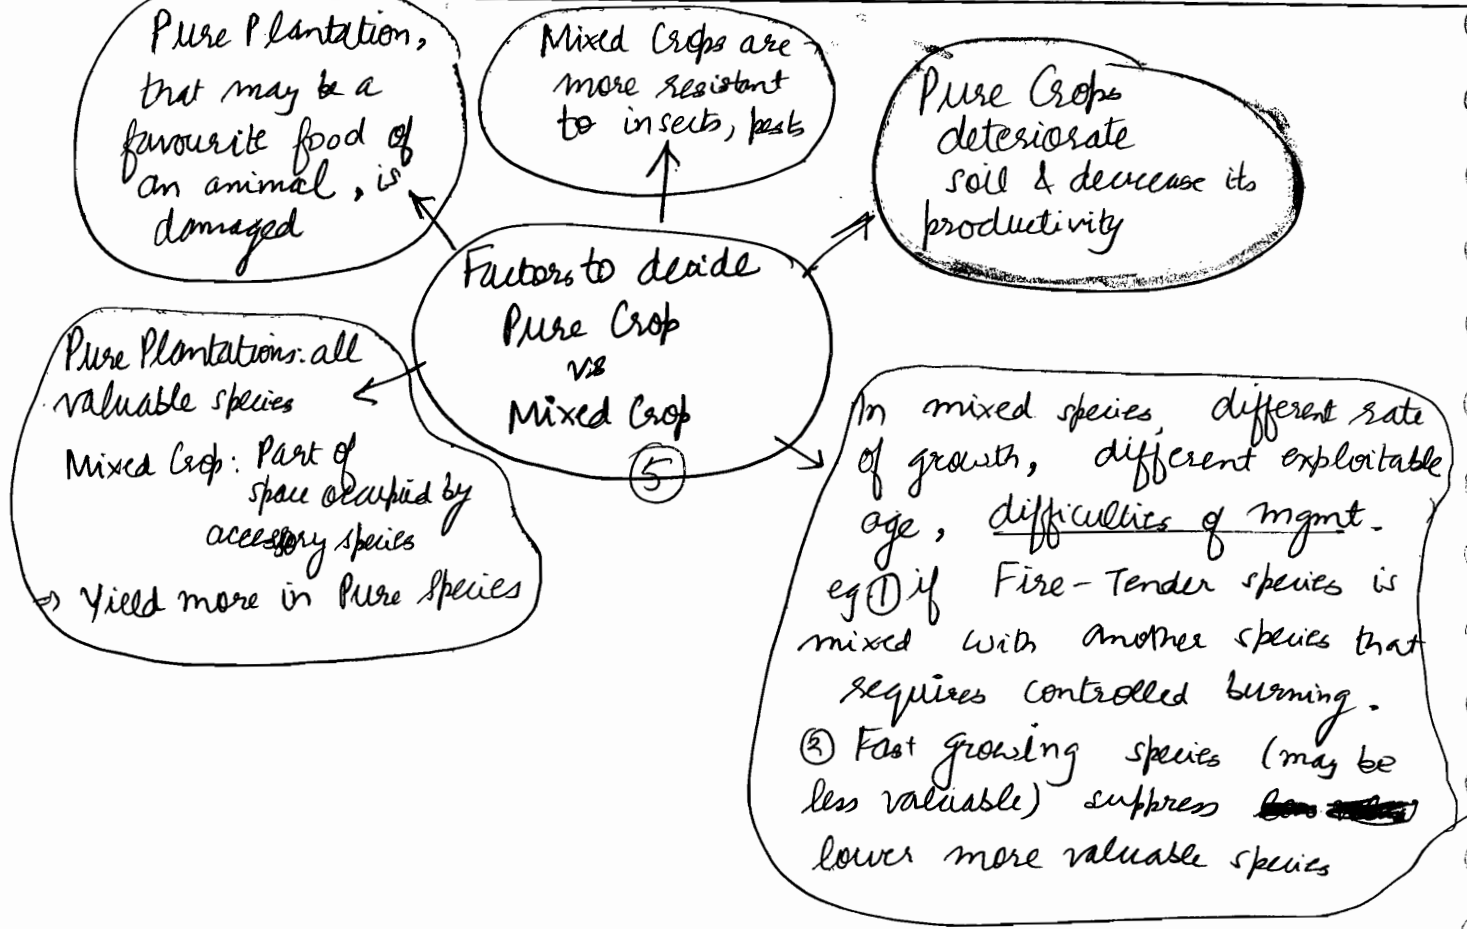 Pure Plantation,
that may be a
favourite food of
an animal, is
damaged
Mixed Crops are
more resistant
to insects, pests
Pure Crops
deteriorate
soil & decrease its
productivity
Factors to decide
Pure Crop
v/s
Mixed Crop
5
Pure Plantations: all
valuable species
Mixed Crop: Part of
space occupied by
accessory species
⇒ Yield more in Pure Species
In mixed species, different rate
of growth, different exploitable
age, difficulties of mgmt.
eg ① if Fire-Tender species is
mixed with another species that
requires controlled burning.
② Fast growing species (may be
less valuable) suppress
lower more valuable species